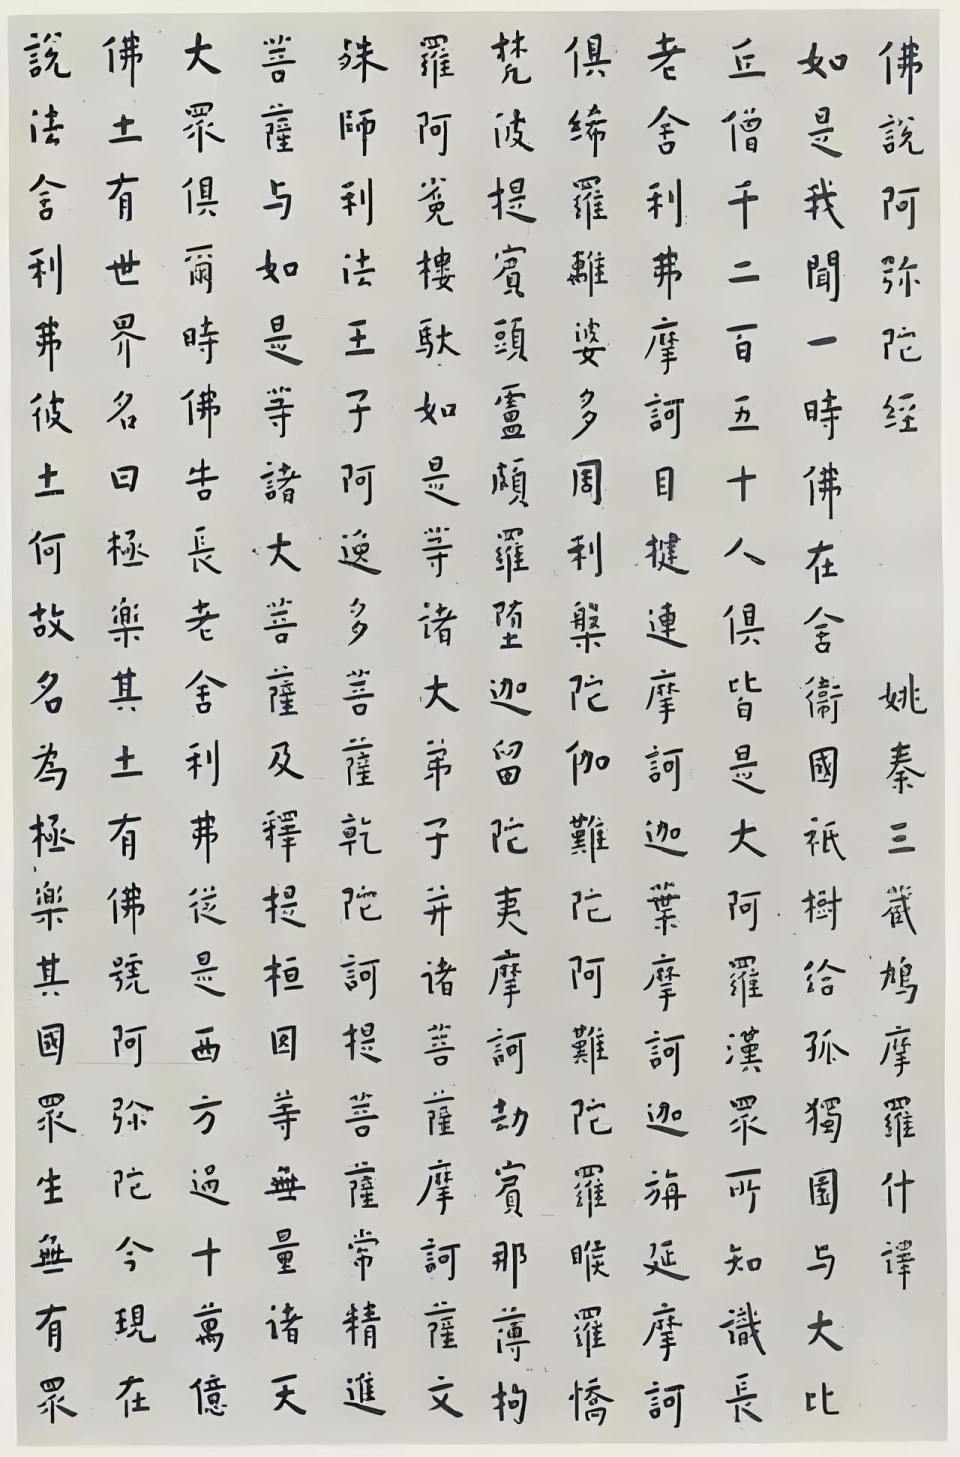 佛說阿弥陀經 姚秦三藏鳩摩羅什譯
如是我聞一時佛在舍衛國祇樹給孤獨園与大比
丘僧千二百五十人俱皆是大阿羅漢眾所知識長
老舍利弗摩訶目揵連摩訶迦葉摩訶迦旃延摩訶
俱絺羅離婆多周利槃陀伽難陀阿難陀羅睺羅憍
梵波提賓頭盧頗羅墮迦留陀夷摩訶劫賓那薄拘
羅阿㝹樓馱如是等諸大弟子并诸菩薩摩訶薩文
殊師利法王子阿逸多菩薩乾陀訶提菩薩常精進
菩薩与如是等諸大菩薩及釋提桓因等無量诸天
大眾俱爾時佛告長老舍利弗從是西方過十萬億
佛土有世界名曰極楽其土有佛號阿弥陀今現在
說法舍利弗彼土何故名為極楽其國眾生無有眾